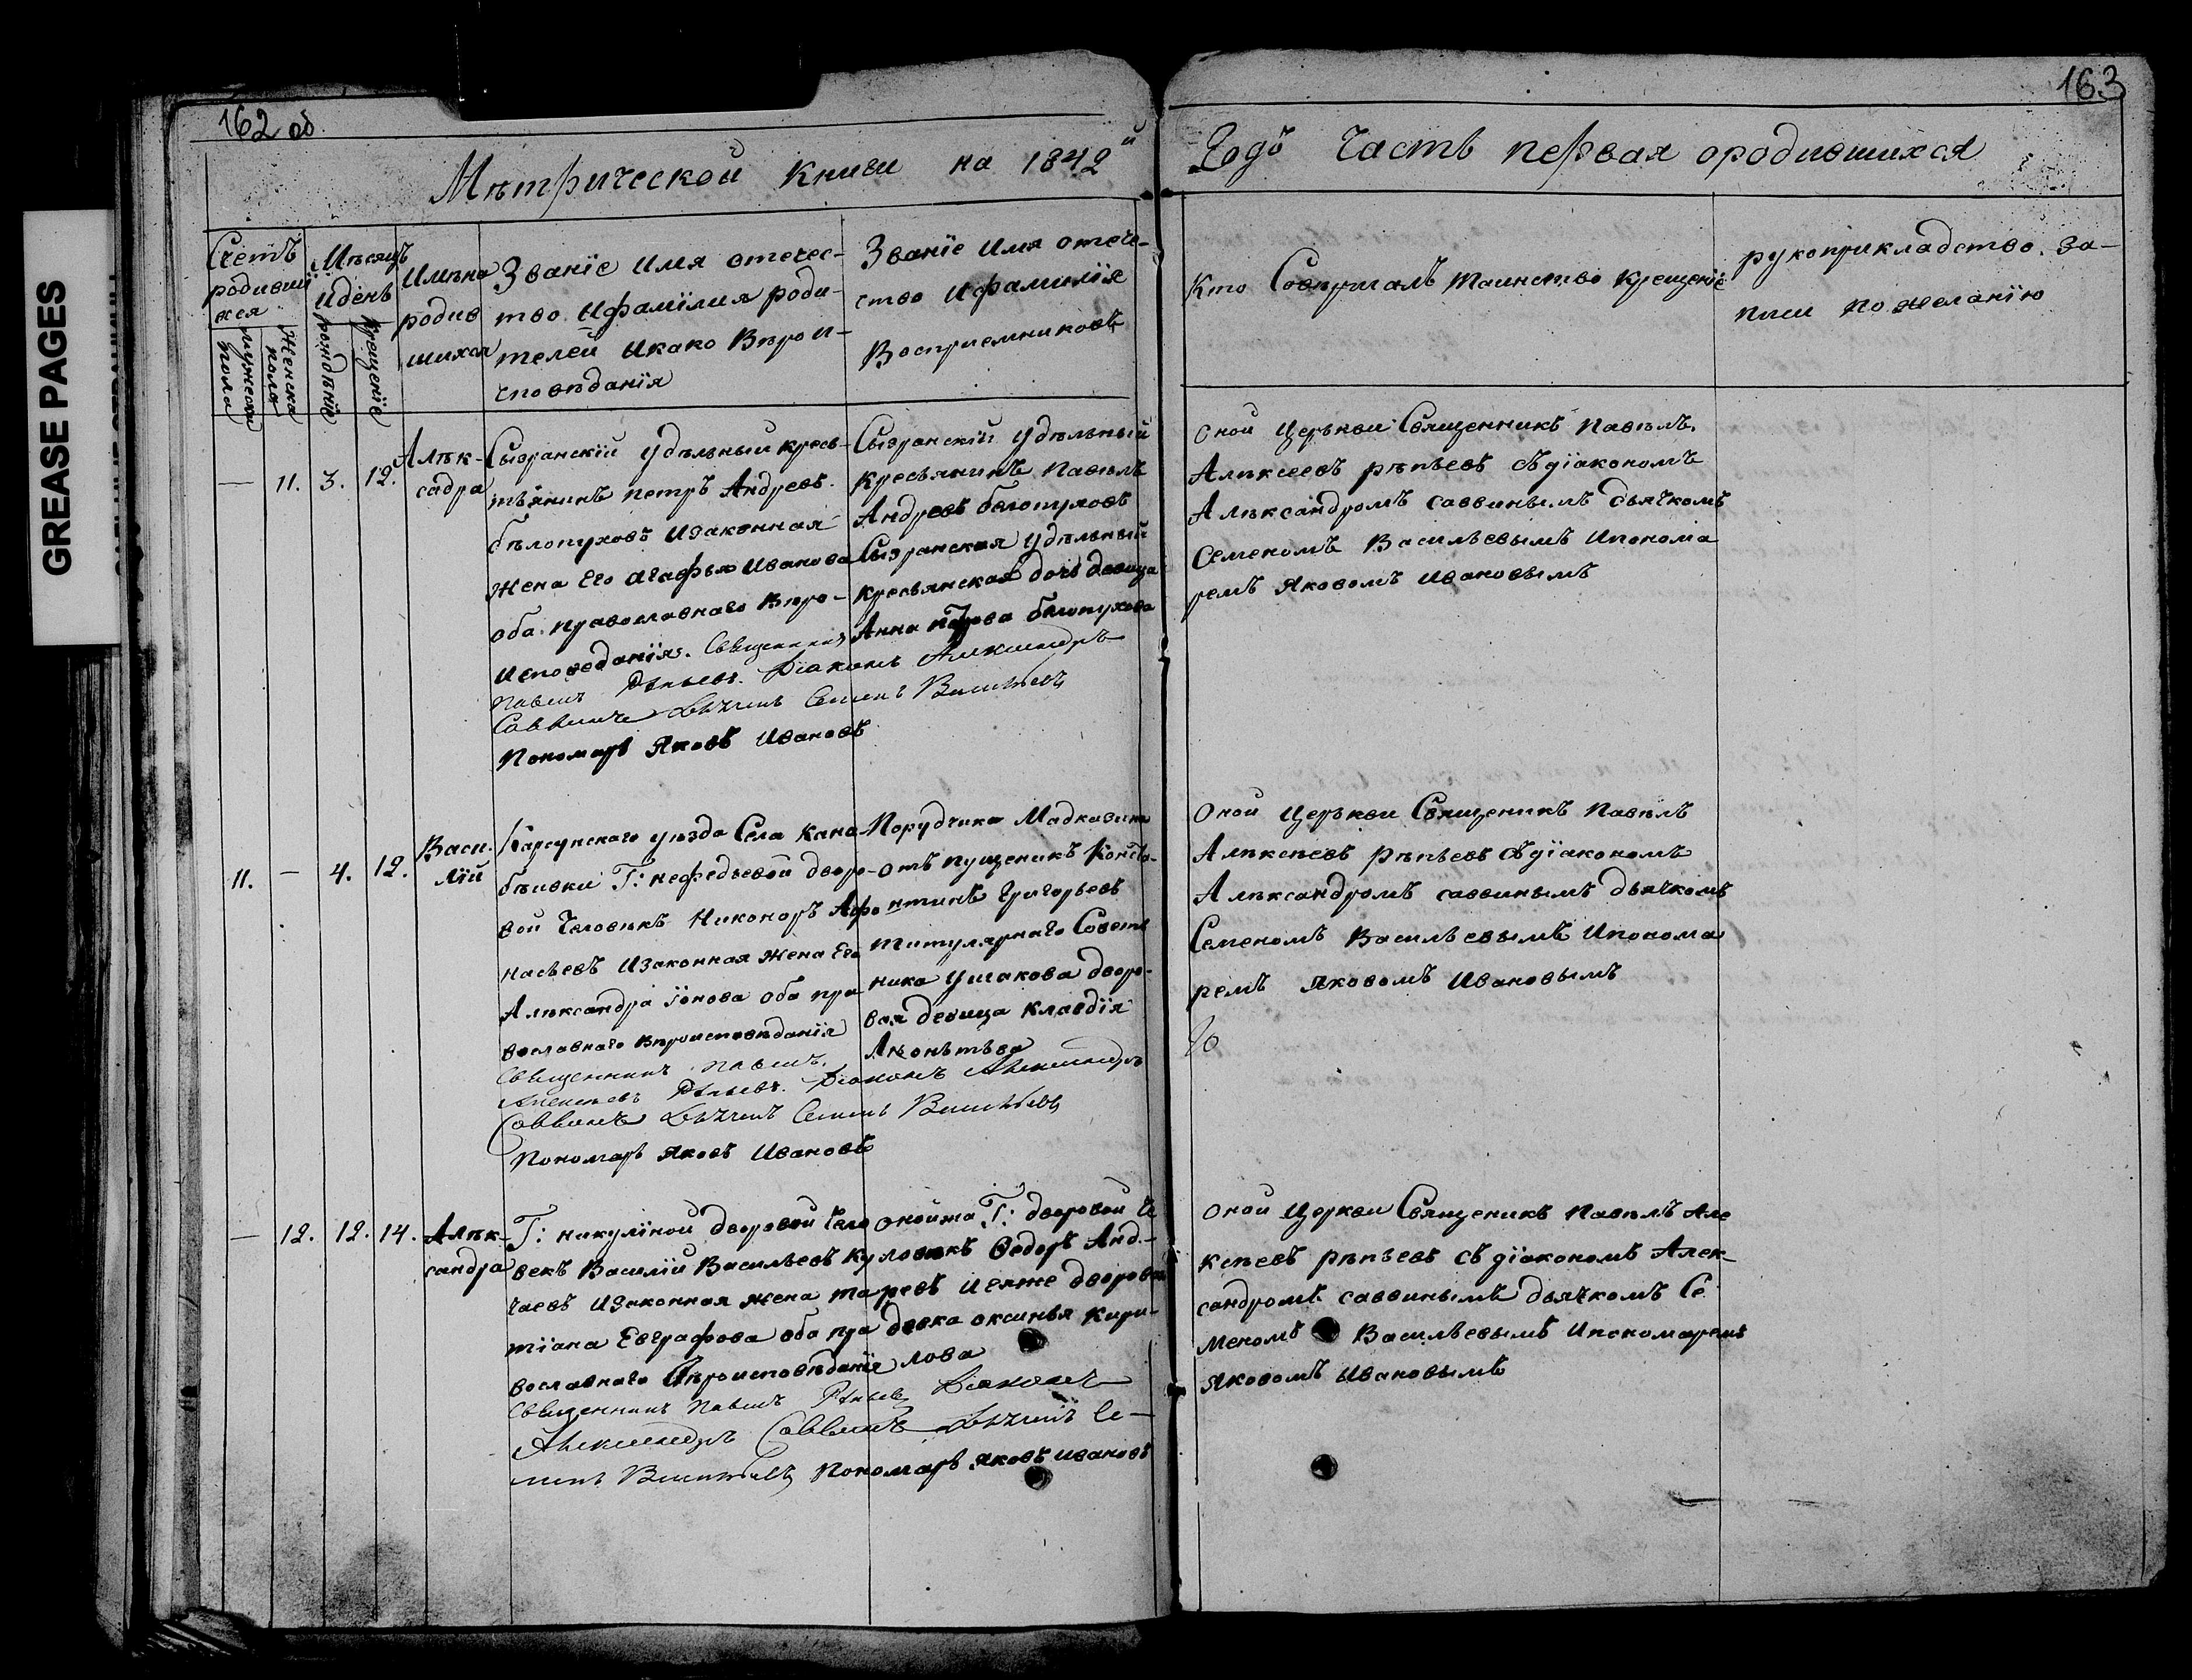 GREASE PAGES
162 об.
163
Мѣтрической книги на 1842й Годъ Часть первая ородившихся
Счетъ
родивши
хся
мужеска
пола
Женска
пола
Мѣсяцъ
идень
рождѣніе
крещеніе
Имѣна
родив
шихся
Званіе Имя отечес-
тво Ифамилия роди-
телей икако Вѣрои-
споведанія
Званіе Имя отече-
ство ифамилія
Восприемниковъ
Кто Совѣршалъ таинство крещеніе
рукоприкладство. за-
писи по желанію
— 11. 3. 12.
Алѣк-
садра
Сызранскій удѣльный кресь-
тьянинъ петръ Андревъ.
бѣлопуховъ Изаконная
жена Его Агафья Иванова
оба. православнаго Вѣро-
исповеданія. Священникъ
Павелъ Рѣпьевъ. Діаконъ Александръ
Саввинъ Дьячекъ Семенъ Васильевъ
Пономарь Яковъ Ивановъ
Сызранскій удѣльный
кресьянинъ Павѣлъ
Андревъ бѣлопуховъ
Сызранская удѣльный
кресьянская дочь девица
Анна петрова бѣлопухова
Оной Церькви Священникъ Павѣлъ.
Алѣксеевъ рѣпьевъ съдіакономъ
Алѣксандромъ саввинымъ дьячкомъ
Семеномъ ВасильевымъИпонома
ремъ Яковомъ Ивановымъ
11. — 4. 12.
Васи.
лій
Карсунскаго уѣзда Села Кана
бѣивки Г: нефедьевой дворо-
вой Человѣкъ Никоноръ Афо
насьевъ Изаконная жена Его
Алѣксандра Іонова оба пра
вославнаго вѣроисповѣданія
Священникъ Павелъ.
Алексѣевъ Рѣпьевъ. Діаконъ Александръ
Саввинъ Дьячекъ Семенъ Васильевъ
Пономарь Яковъ Ивановъ
Порудчика Мадкавина
отъ пущеникъ Конста-
нтинъ Григорьевъ
титулярнаго Советъ
ника Ушакова дворо-
вая девица Клавдія
Лѣонѣтьва
Оной Церькви Священикъ Павѣлъ
Алѣксѣевъ рѣпьевъ съдіакономъ
Алѣксандромъ саввинымъ дьячкомъ
Семеномъ Васильевымъ Ипонома
ремъ Яковомъ Ивановымъ
— 12. 12. 14.
Алѣк-
сандра
Г: никуліной дворовой Чело
векъ Василій Васильевъ Ку
чаевъ Изаконная жена та
тіана Евграфова оба пра
вославнаго Вѣроисповѣданіе
Священникъ Павелъ Рѣпьевъ Діаконъ
Александръ Саввинъ Дьячекъ Се-
менъ Васильевъ Пономарь Яковъ ивановъ
онойжа Г: дворовой че
ловѣкъ Федоръ Анд-
ревъ иеяже дворова
девка оксинья кири-
лова
Оной Церкви Священикъ Павѣлъ Але
ксѣевъ рѣпьевъ съ діакономъ Алек-
сандромъ саввинымъ дьячкомъ Се
меномъ Васильевымъ Ипономаремъ
Яковомъ Ивановымъ